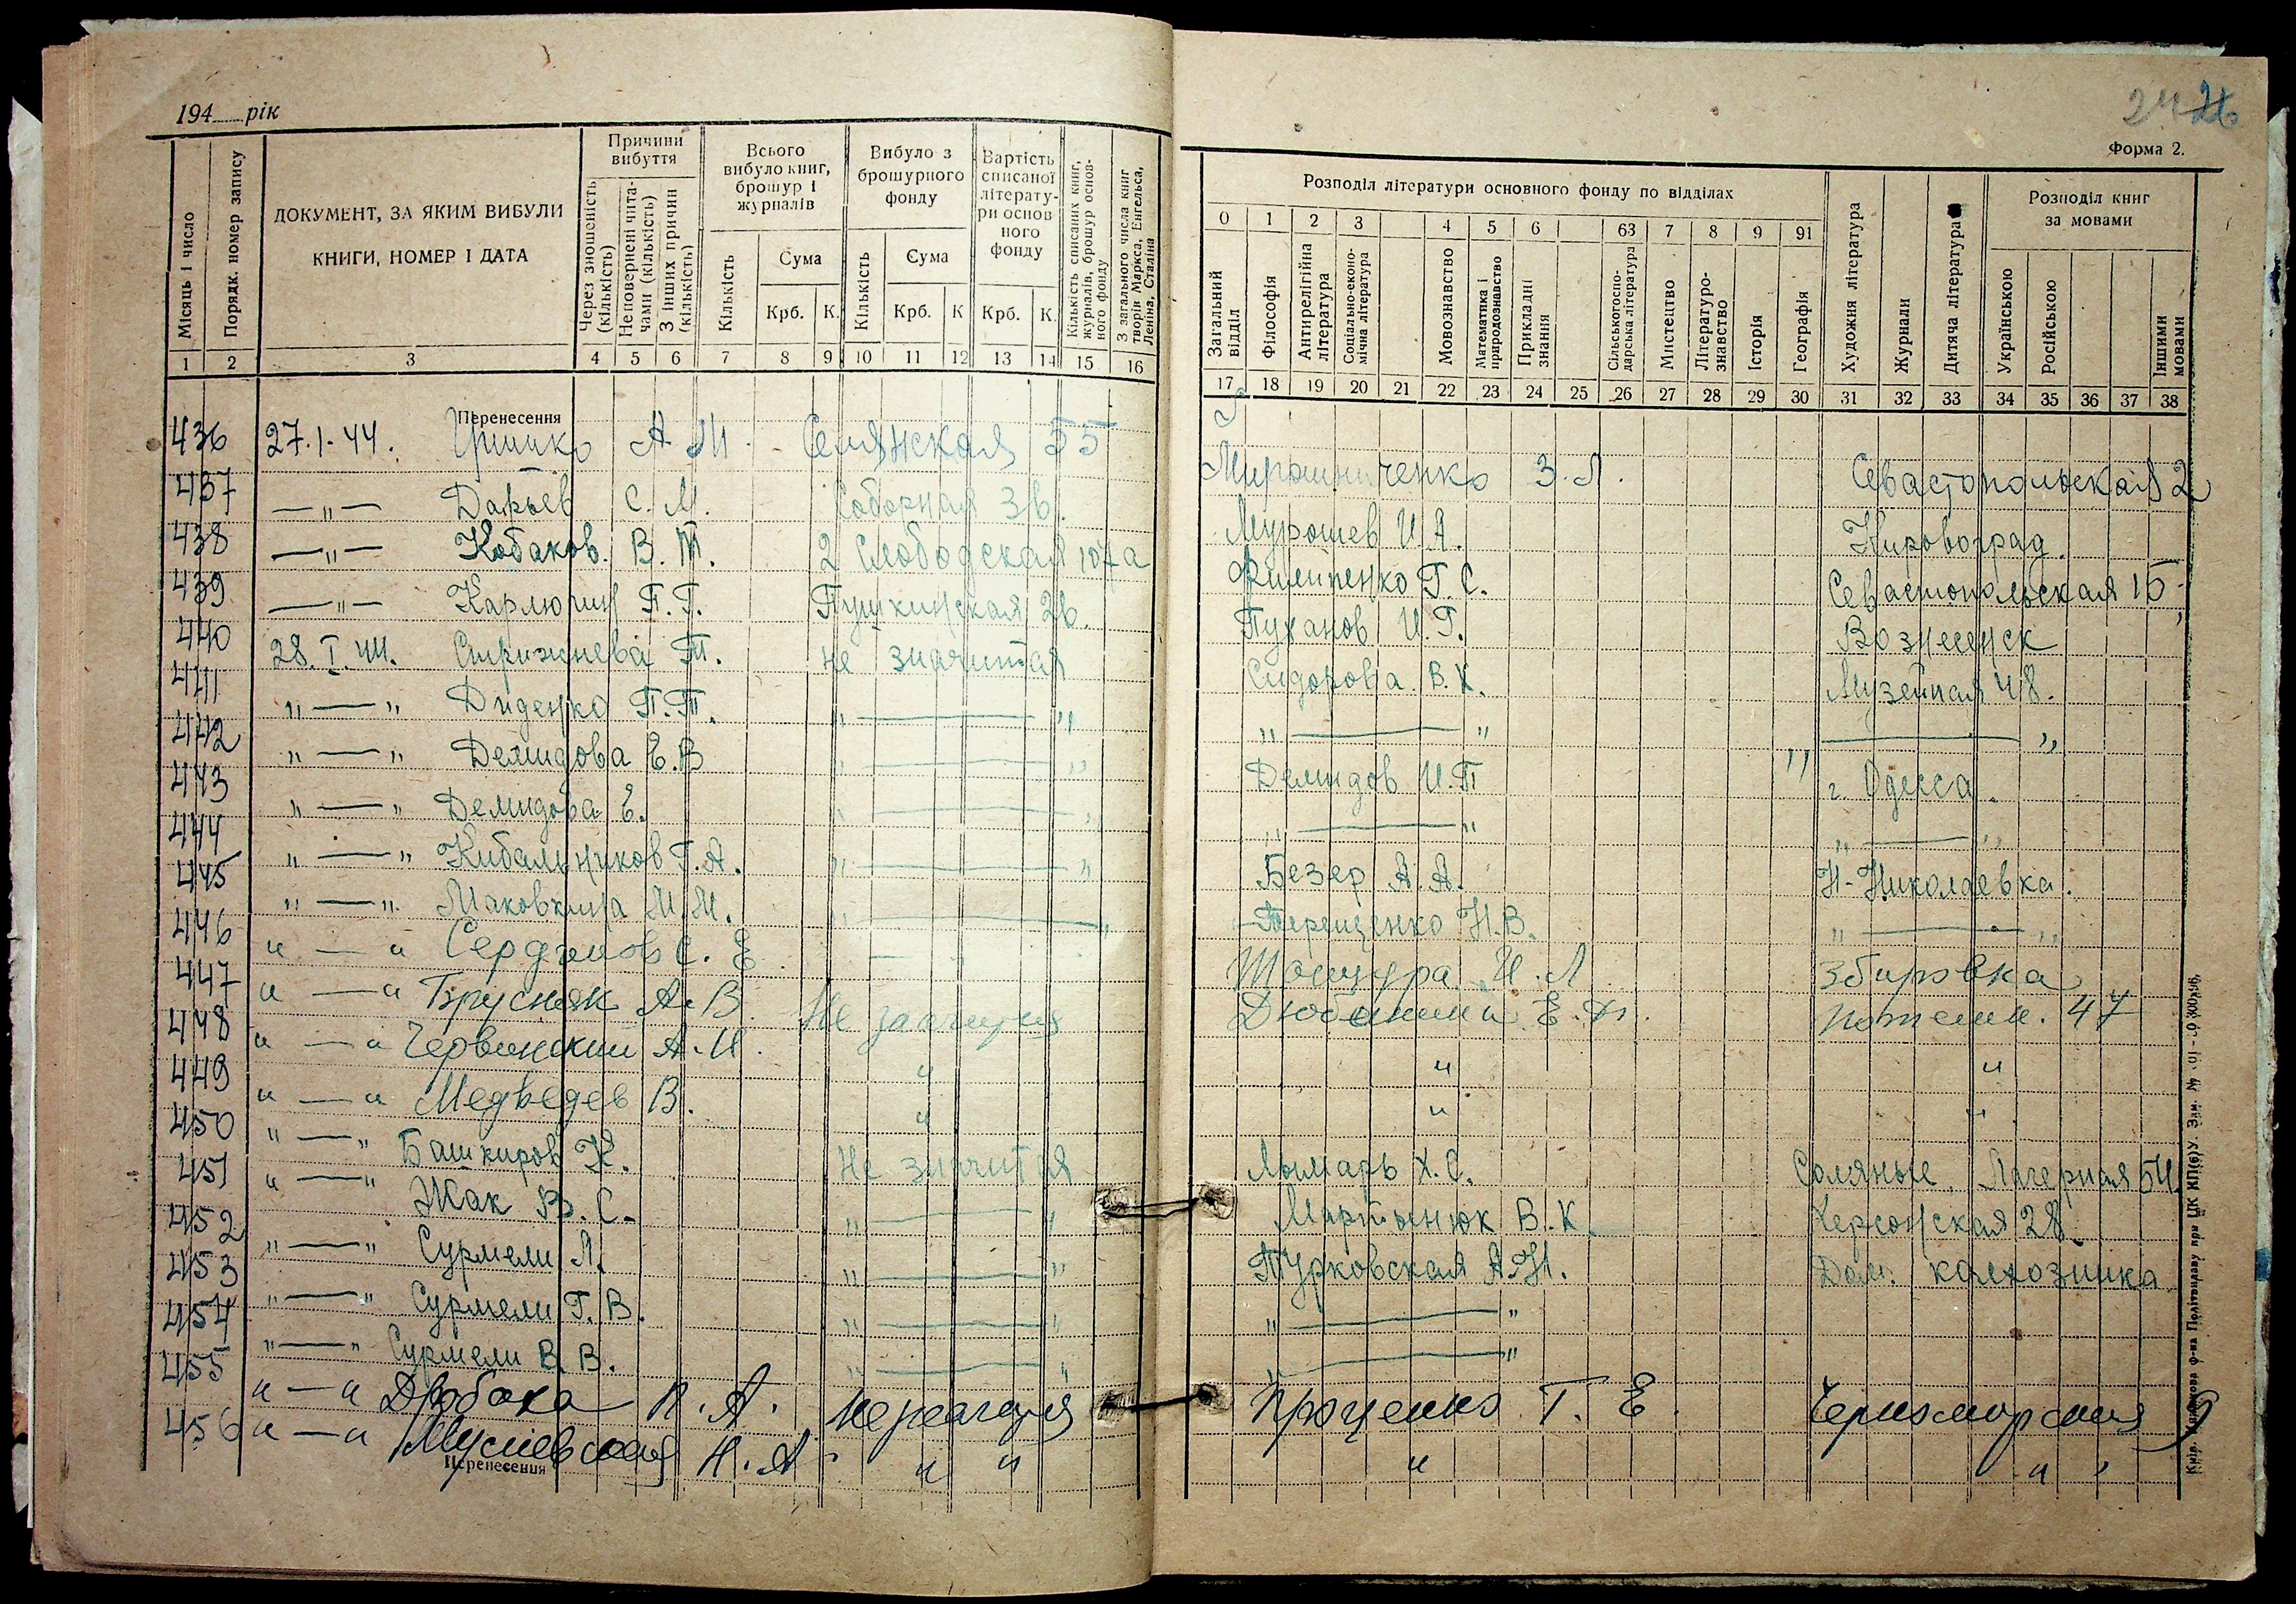 194 рік
24 26
Форма 2.
Місяць і число
Порядк. номер запису
ДОКУМЕНТ, ЗА ЯКИМ ВИБУЛИ
КНИГИ, НОМЕР І ДАТА
Причини вибуття
Через зношеність (кількість)
Неповернені читачами (кількість)
З інших причин (кількість)
Всього вибуло книг, брошур і журналів
Кількість
Сума
Крб. К.
Вибуло з брошурного фонду
Кількість
Сума
Крб. К
Вартість списаної літератури основного фонду
Крб. К.
Кількість списаних книг, журналів, брошур основного фонду
З загального числа книг творів Маркса, Енгельса, Леніна, Сталіна
1 2 3 4 5 6 7 8 9 10 11 12 13 14 15 16
Розподіл літератури основного фонду по відділах
0 1 2 3 4 5 6 63 7 8 9 91
Загальний відділ
Філософія
Антирелігійна література
Соціально-економічна література
Мовознавство
Математика і природознавство
Прикладні знання
Сільськогосподарська література
Мистецтво
Літературознавство
Історія
Географія
Художня література
Журнали
Дитяча література
Розподіл книг за мовами
Українською
Російською
Іншими мовами
17 18 19 20 21 22 23 24 25 26 27 28 29 30 31 32 33 34 35 36 37 38
Перенесення
436 27.1.44. А. М. Селянская 55 Мирошниченко З.Л. Севастопольская 2
437 —„— Дарьев С. М. Соборная 3в. Мурошев И.А. Кировоград.
438 —„— Кобаков. В. Т. 2 Слободская 107а Филипенко Г.С. Севастопольская 15
439 —„— Карлюгин П.Г. Пушкинская 26. Пуханов И.Г. Вознесенск
440 28.I.44. Стрижнева Т. не значится Сидорова В.Х. Музейная 48.
441 „—„ Диденко П.Т. „—„ „—„ „—„
442 „—„ Демидова Е.В „—„ Демидов И.П г. Одесса.
443 „—„ Демидова Е. „—„ „—„ „—„
444 „—„ Кибальников Г.А. „—„ Безер А.А. Н-Николаевка.
445 „—„ Маковкина М.М. „—„ Терещенко Н.В. „—„
446 „—„ С. Е И. Л Збировка
447 „—„ Брусняк А.В. Не значится Дюбинина Е. 47
448 „—„ Червинский А.И. „ „ „
449 „—„ Медведев В. „ „ „
450 „—„ Башкиров К. Не значится Лымарь Х.С. Соляные, 54.
451 „—„ Жак В.С. „—„ Мартынюк В.К Херсонская 28.
452 „—„ Сурмели Л. „—„ Турковская А.Н. Дом. колхозника
453 „—„ Сурмели Г.В. „—„ „—„
454 „—„ Сурмели В.В. „—„ „—„
455 „—„ Дробока П.А. не значится Проценко Г. Е. Черноморская 9
456 „—„ Н.А. „ „ „ „
Перенесення